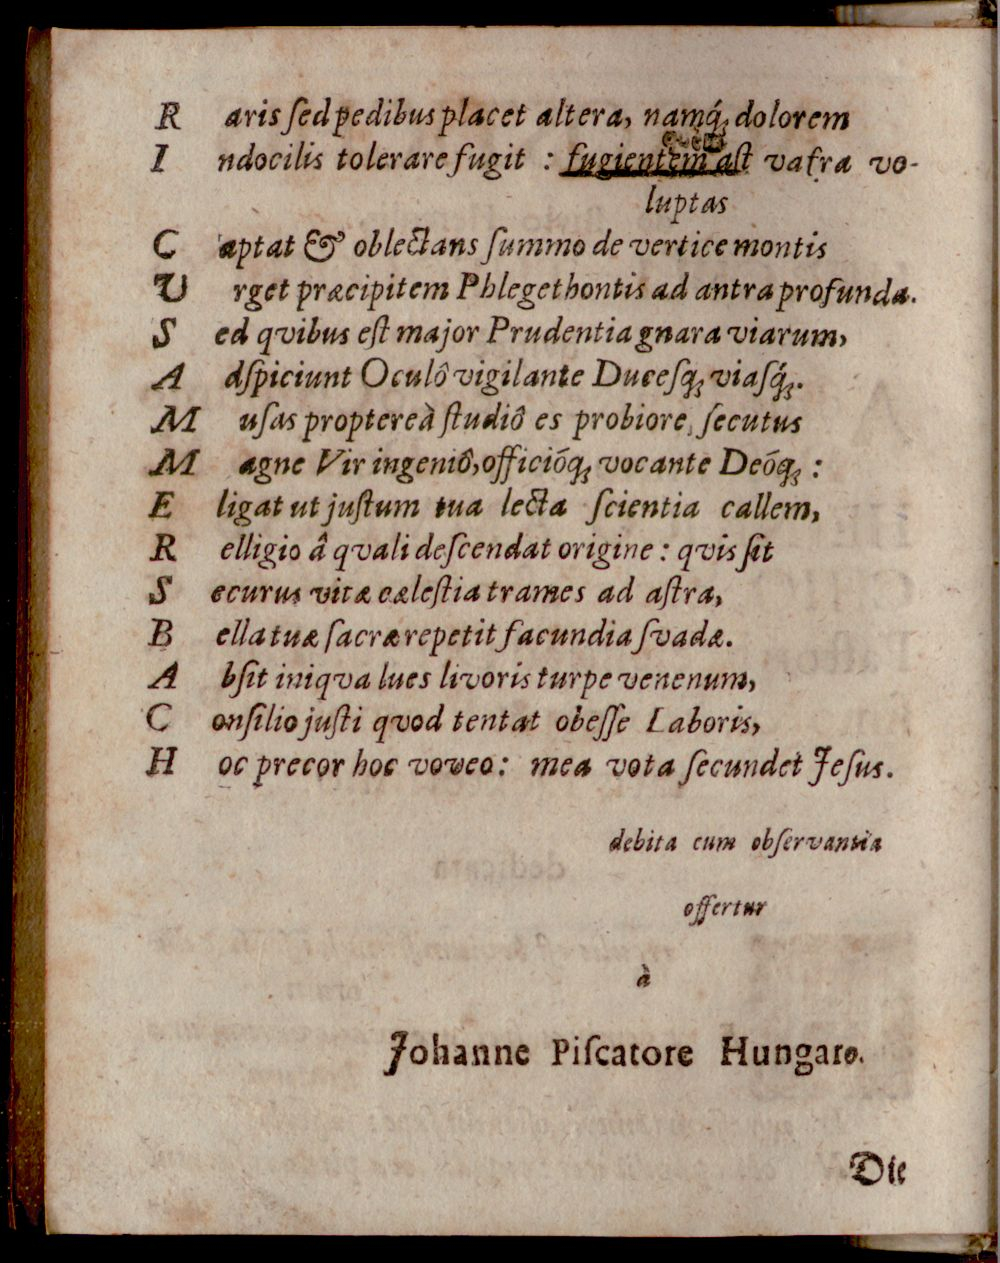 R aris ſed pedibus placet altera, namq́; dolorem
I ndocilis tolerare fugit : fugientem aſt vafra vo-
luptas
C aptat & oblectans ſummo de vertice montis
U rget præcipitem Phlegethontis ad antra profunda.
S ed qvibus eſt major Prudentia gnara viarum,
A dſpiciunt Oculô vigilante Ducesq; viasq́;.
M uſas proptereà ſtudiô es probiore ſecutus
M agne Vir ingeniô, officióq; vocante Deóq; :
E ligat ut juſtum tua lecta ſcientia callem,
R elligio â qvali deſcendat origine : qvis ſit
S ecurus vitæ cæleſtia trames ad aſtra,
B ella tuæ ſacræ repetit facundia ſvadæ.
A bſit iniqva lues livoris turpe venenum,
C onſilio juſti qvod tentat obeſſe Laboris,
H oc precor hoc voveo : mea vota ſecundet Jeſus.
debita cum obſervantia
offertur
à
Johanne Piſcatore Hungaro.
Die